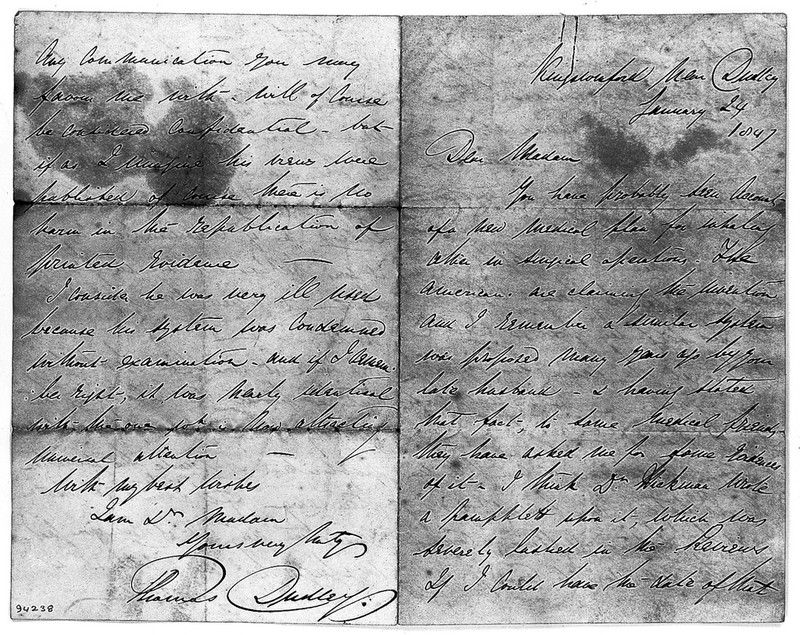 Kingswinford Near Dudley
January 24
1847
Dear Madam
You have probably seen accounts
of a new medical plan for inhaling
ether in surgical operations. The
Americans are claiming the invention
and I remember a similar system
was proposed many years ago by your
late husband - & having stated
that fact, to some medical friends,
they have asked me for some evidence
of it - I think Dr Hickman wrote
a pamphlett upon it, which was
severely lashed in the Reviews
If I could have the date of that
Any Communication you may
favour me with - will of Course
be considered Confidential - but
if as I imagine his views were
published of course there is no
harm in the republication of
printed Evidence —
I consider he was very ill used
because his system was Condemned
without examination - and if I remem-
:ber right, it was nearly identical
with the one wh. is now attracting
universal attention —
With my best wishes
I am Dr Madam
Yours very truly
Thomas Dudley.
94238